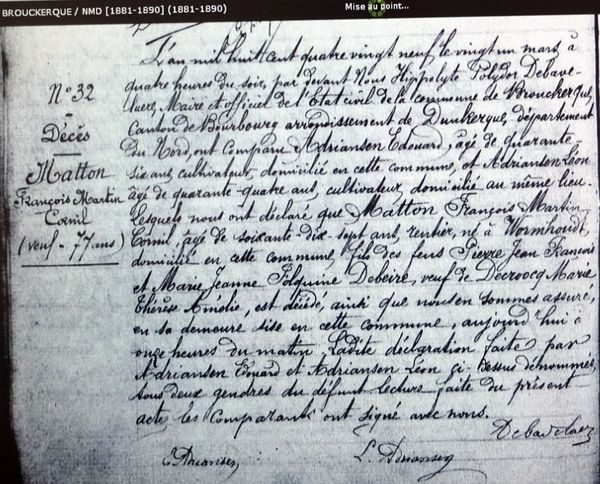 BROUCKERQUE / NMD [1881-1890] (1881-1890)
Mise au point...
N° 32
Décès
Matton
François Martin
Cornil
(veuf - 77 ans)
L'an mil huit cent quatre vingt neuf le vingt un mars, à
quatre heures du soir, par devant Nous Hippolyte Polydor Debave-
laere, Maire et officier de l'Etat civil de la commune de Brouckerque,
Canton de Bourbourg arrondissement de Dunkerque, département
du Nord, ont comparu Adriansen Edouard, âgé de quarante
six ans, cultivateur, domicilié en cette commune, et Adriansen Léon
âgé de quarante-quatre ans, cultivateur, domicilié au même lieu.
Lesquels nous ont déclaré que Matton François Martin
Cornil, âgé de soixante-dix-sept ans, rentier, né à Wormhoudt,
domicilié en cette commune, fils des feus Pierre Jean François
et Marie Jeanne Folquine Debeire, veuf de Decroocq Marie
Thérèse Amélie, est décédé, ainsi que nous en sommes assuré,
en sa demeure sise en cette commune, aujourd'hui à
onze heures du matin. Ladite déclaration faite par
Adriansen Edouard et Adriansen Léon ci-dessus dénommés,
tous deux gendres du défunt lecture faite du présent
acte, les comparants ont signé avec nous.
Debavelaere
E. Adriansen
L. Adriansen